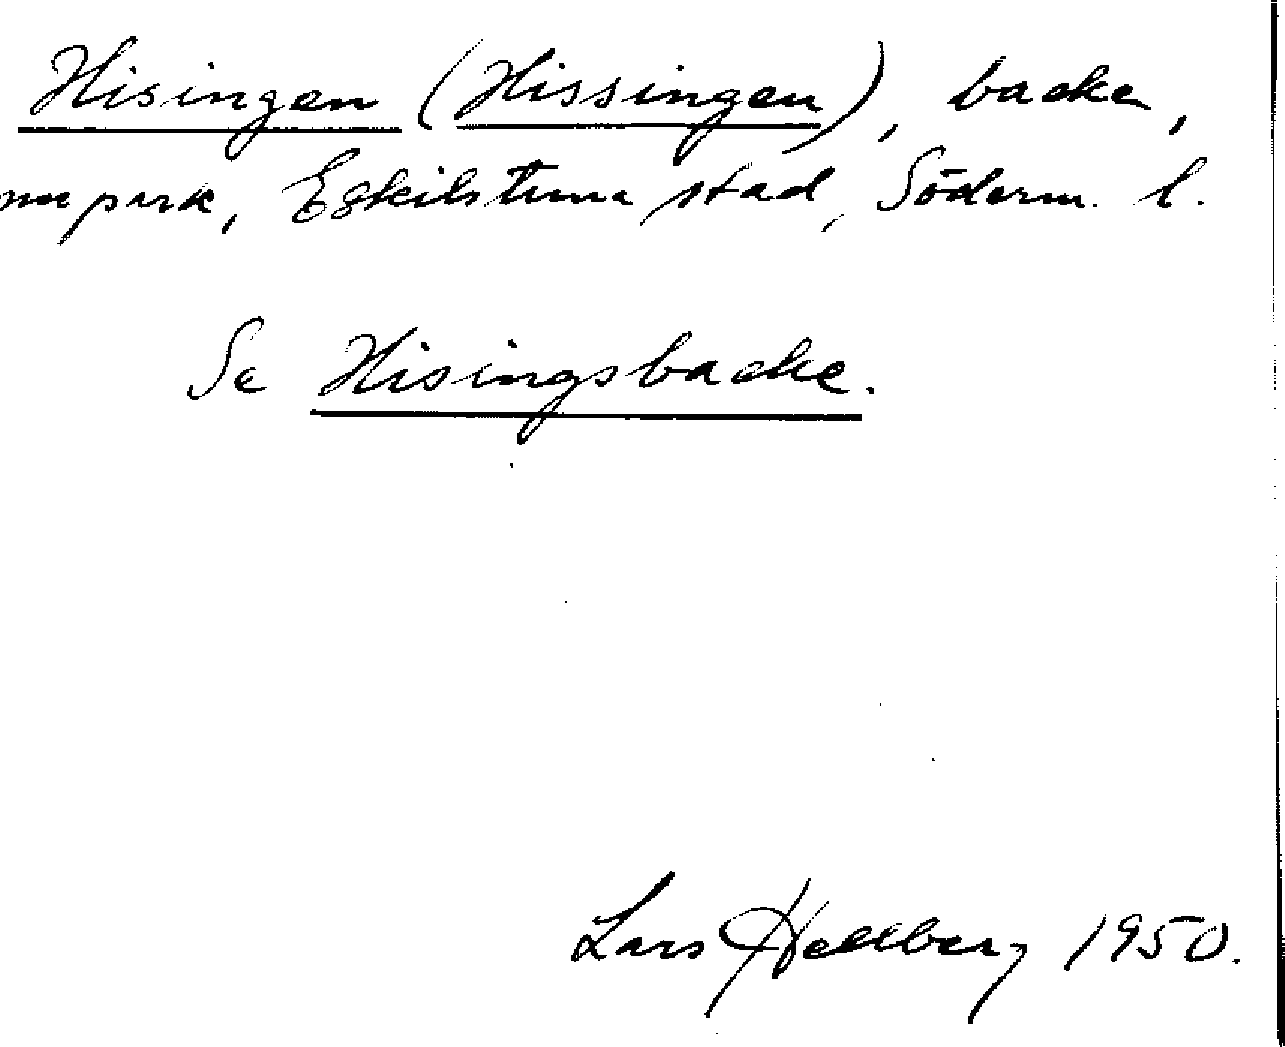 Hisingen (Hissingen), backe,
nu park, Eskilstuna stad, Söderm. l.
Se Hisingsbacke.
Lars Hellberg 1950.